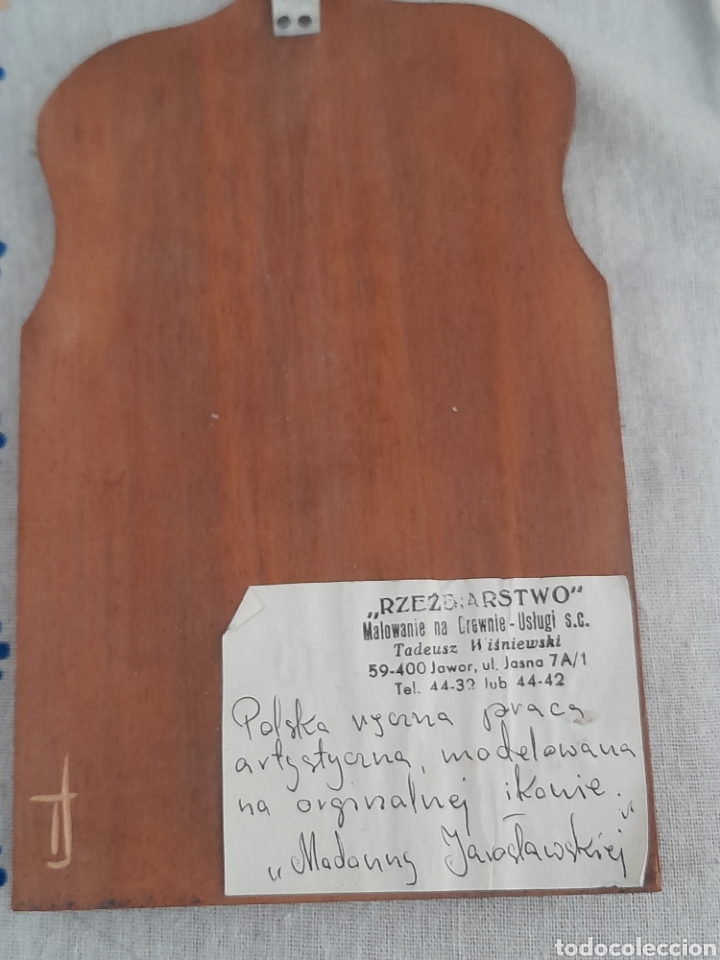 „RZEŹBIARSTWO"
Malowanie na Drewnie - Usługi s.c.
Tadeusz Wiśniewski
59-400 Jawor, ul. Jasna 7A/1
Tel. 44-32 lub 44-42
Polska ręczna praca
artystyczna, modelowana
na orginalnej ikonie.
„Madonny Jarosławskiej"
todocoleccion